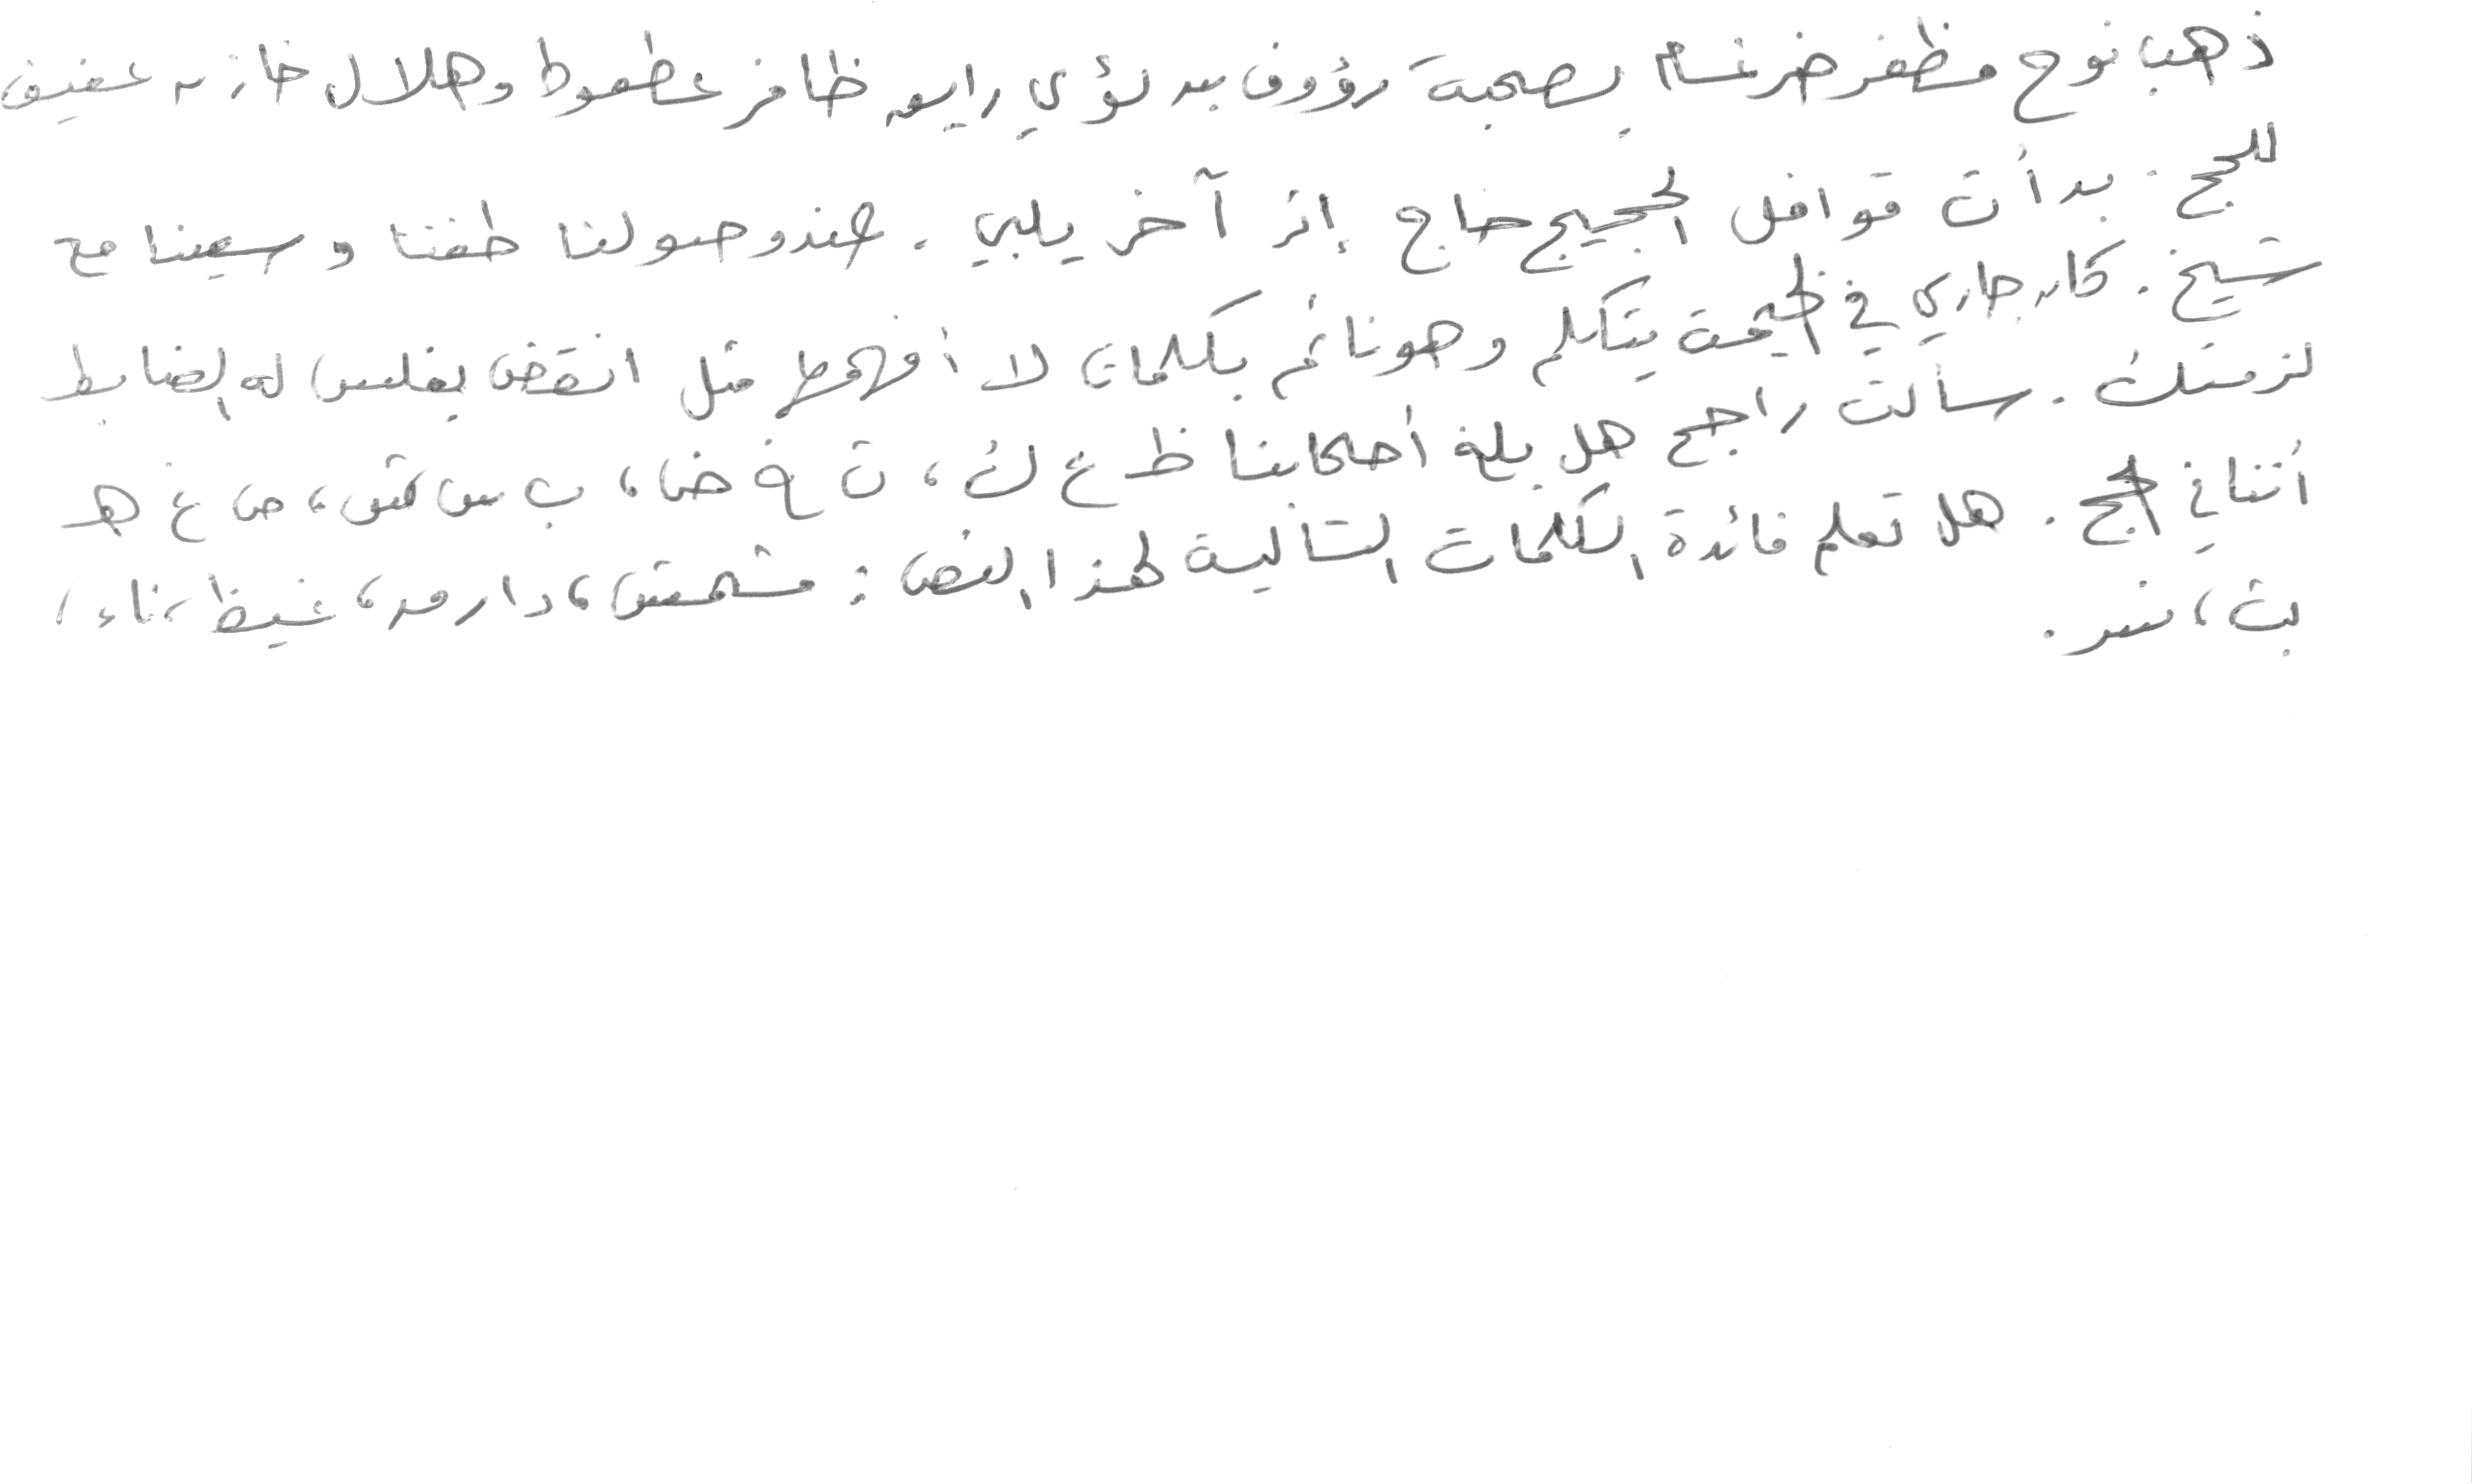 ذهب نوح مظفر ضرغام بصحبة رؤوف بن لؤي رايع ظافر عطعوط وهلال خازم عفيف
للحج. بدأت قوافل الحجيج حاج إثر آخر يلبي. عند وصولنا طفنا وسعينا مع
شيخ. كان جاري في الخيمة يتكلم وهو نائم بكلمات لا أفهمها مثل انقض يغلس له الضابط
لزمتك. سألت راجح هل بلغ أصحابنا ظ غ ك، ث غ ض، ب س ش، ص غ هـ
أثناء الحج. هل تعلم فائدة الكلمات التالية لهذا النص: مشمش، دار مر، غيظ، ناء،
بث، نسر.